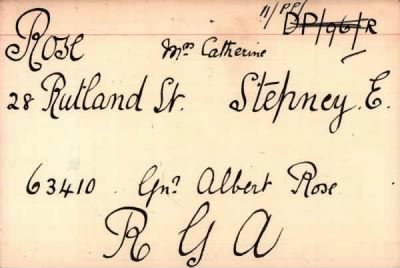 11/PP/
DP/96/R
Rose Mrs Catherine
28 Rutland St. Stepney. E.
63410 Gnr Albert Rose
R G A